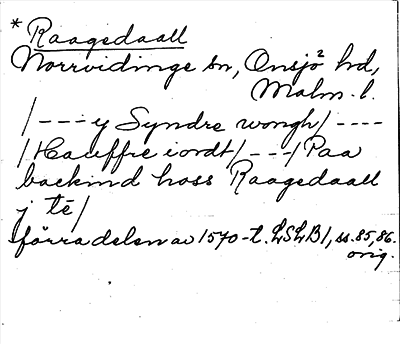 * Raagedaall
Norrvidinge sn, Onsjö hd,
Malm. l.
/--- y Syndre wongh/ ----
/Hauffre iordt/ ---/ Paa
backind hoss Raagedaall
j tē/
förra delen av 1570-t. LSLB1, ss. 85, 86.
orig.